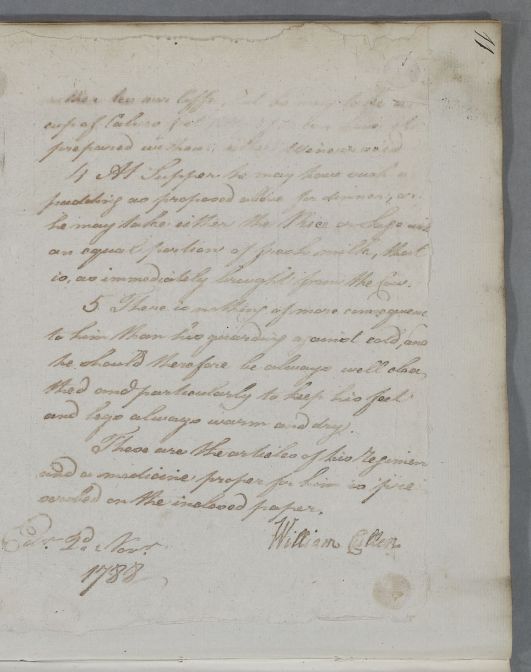 11
neither tea nor Coffe, but he may take a
cup of
prepared
4 At Supper he may have such a
pudding as proposed above for dinner, or
he may take either the Rice or Sago with
an equal portion of fresh milk, that
is, as immediately brought from the Cow.
5 There is nothing of more consequence
to him than his guarding against cold, and
he should therefore be always well cloa
thed and particularly to keep his feet
and legs always warm and dry.
These are the articles of his Regimen
and a medicine proper for him is pre
scribed on the inclosed paper.
William Cullen
Edr. 2d. Novr.
1788